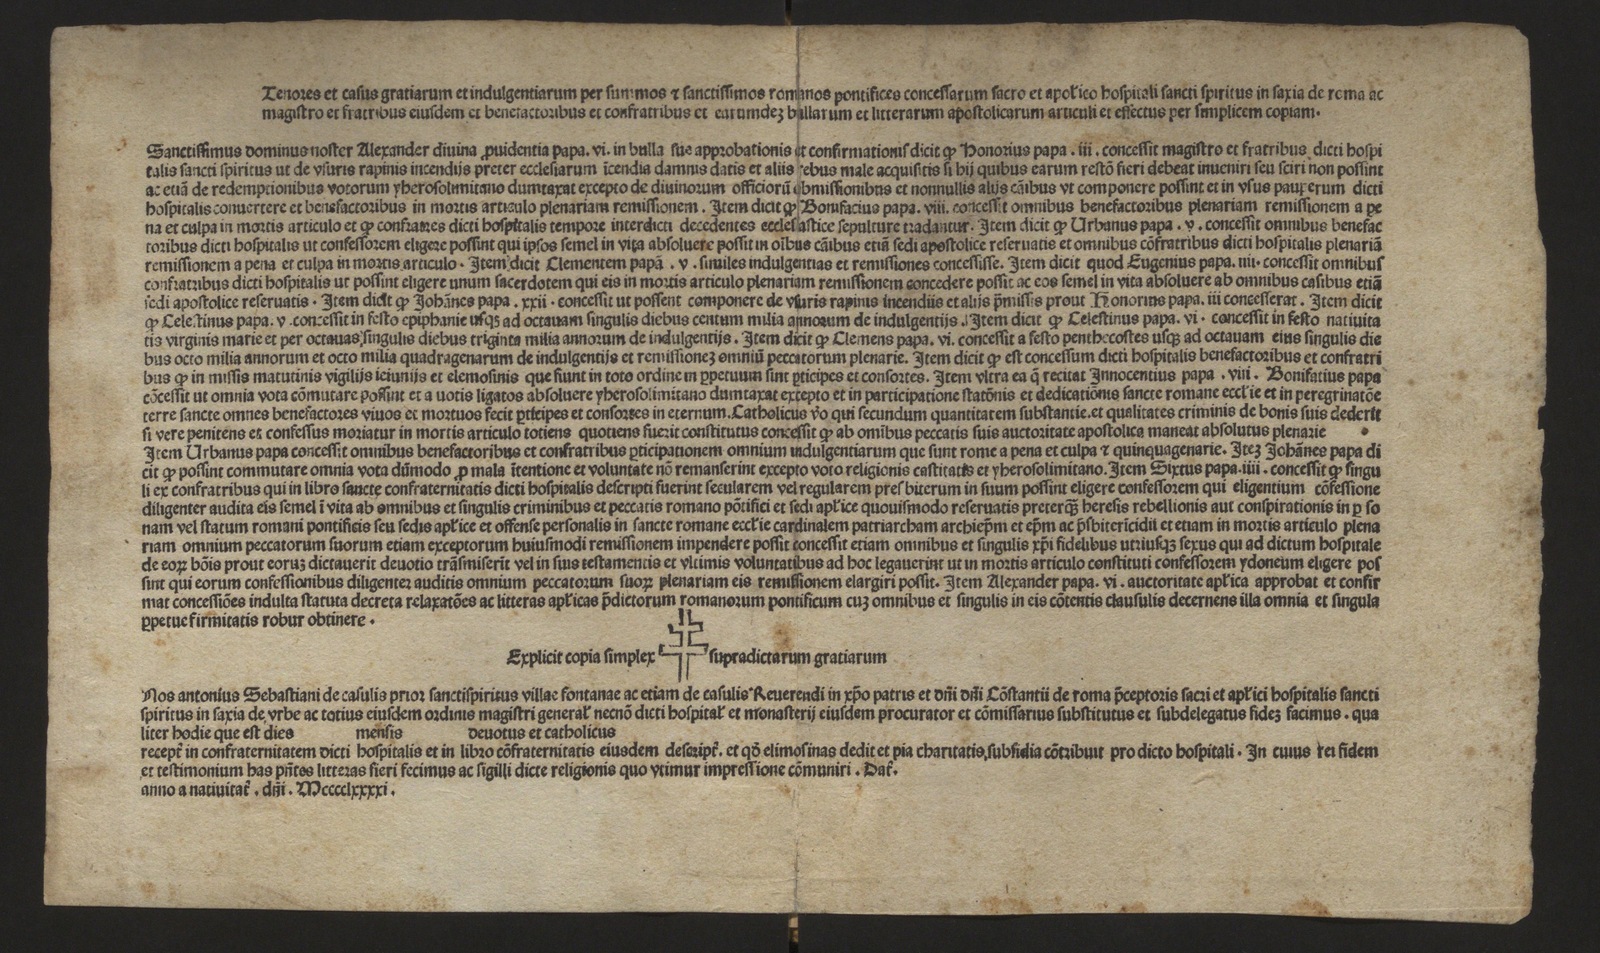 Tenores et casus gratiarum et indulgentiarum per summos ⁊ sanctissimos romanos pontifices concessarum sacro et apoſlico hospitali sancti spiritus in saxia de roma ac
magistro et fratribus eiusdem et benefactoribus et confratribus et earumdeꝫ bullarum et litterarum apostolicarum articuli et effectus per simplicem copiam.
Sanctissimus dominus noster Alexander diuina ꝓuidentia papa. vi. in bulla sue approbationis et confirmationis dicit qꝫ Honorius papa . iii . concessit magistro et fratribus dicti hospi
talis sancti spiritus ut de vsuris rapinis incendijs preter ecclesiarum īcendia damnis datis et aliis rebus male acquisitis si hij quibus earum restō fieri debeat inueniri seu sciri non possint
ac etiā de redemptionibus votorum yherosolimitano dumtaxat excepto de diuinorum officiorū obmissionibus et nonnullis alijs cāibus vt componere possint et in vsus pauperum dicti
hospitalis conuertere et benefactoribus in mortis articulo plenariam remissionem . Item dicit qꝫ Bonifacius papa. viii. concessit omnibus benefactoribus plenariam remissionem a pe
na et culpa in mortis articulo et qꝫ confratres dicti hospitalis tempore interdicti decedentes ecclesiastice sepulture tradantur. Item dicit qꝫ Urbanus papa . v . concessit omnibus benefac
toribus dicti hospitalis ut confessorem eligere possint qui ipsos semel in vita absoluere possit in oībus cāibus etiā sedi apostolice reseruatis et omnibus cōfratribus dicti hospitalis plenariā
remissionem a pena et culpa in mortis articulo. Item dicit Clementem papā . v . similes indulgentias et remissiones concessisse. Item dicit quod Eugenius papa. iiii. concessit omnibus
confratribus dicti hospitalis ut possint eligere unum sacerdotem qui eis in mortis articulo plenariam remissionem concedere possit ac eos semel in vita absoluere ab omnibus casibus etiā
sedi apostolice reseruatis . Item dicit qꝫ Johānes papa . xxii . concessit ut possent componere de vsuris rapinis incendiis et alijs p̄missis prout Honorius papa. iii concesserat . Item dicit
qꝫ Celestinus papa. v .concessit in festo epiphanie usqꝫ ad octauam singulis diebus centum milia annorum de indulgentijs . Item dicit qꝫ Celestinus papa. vi . concessit in festo natiuita
tis virginis marie et per octauas singulis diebus triginta milia annorum de indulgentijs . Item dicit qꝫ Clemens papa. vi. concessit a festo penthecostes usqꝫ ad octauam eius singulis die
bus octo milia annorum et octo milia quadragenarum de indulgentijs et remissioneꝫ omniū peccatorum plenarie. Item dicit qꝫ est concessum dicti hospitalis benefactoribus et confratri
bus qꝫ in missis matutinis vigilijs ieiunijs et elemosinis que fiunt in toto ordine in ꝑpetuum sint ꝑticipes et consortes. Item vltra ea q̄ recitat Innocentius papa . viii . Bonifatius papa
cōcessit ut omnia vota cōmutare possint et a uotis ligatos absoluere yherosolimitano dumtaxat excepto et in participatione statōnis et dedicatiōnis sancte romane eccl'ie et in peregrinatōe
terre sancte omnes benefactores viuos et mortuos fecit ꝑticipes et consortes in eternum. Catholicus v̄o qui secundum quantitatem substantie .et qualitates criminis de bonis suis dederit
si vere penitens et confessus moriatur in mortis articulo totiens quotiens fuerit constitutus concessit qꝫ ab omībus peccatis suis auctoritate apostolica maneat absolutus plenarie .
Item Urbanus papa concessit omnibus benefactoribus et confratribus ꝑticipationem omnium indulgentiarum que sunt rome a pena et culpa ⁊ quinquagenarie. Iteꝫ Johānes papa di
cit qꝫ possint commutare omnia vota dūmodo ꝓ mala ītentione et voluntate nō remanserint excepto voto religionis castitatis et yherosolimitano. Item Sixtus papa. iiii . concessit qꝫ singu
li ex confratribus qui in libro sancte confraternitatis dicti hospitalis descripti fuerint secularem vel regularem presbiterum in suum possint eligere confessorem qui eligentium cōfessione
diligenter audita eis semel ī vita ab omnibus et singulis criminibus et peccatis romano pōtifici et sedi apl'ice quouismodo reseruatis preterqꝫ heresis rebellionis aut conspirationis in ꝑso
nam vel statum romani pontificis seu sedis apl'ice et offense personalis in sancte romane eccl'ie cardinalem patriarcham archiep̄m et ep̄m ac p̄sbitericidii et etiam in mortis articulo plena
riam omnium peccatorum suorum etiam exceptorum huiusmodi remissionem impendere possit concessit etiam omnibus et singulis xp̄i fidelibus utriusqꝫ sexus qui ad dictum hospitale
de eoꝝ bōis prout eoruꝫ dictauerit deuotio trāsmiserit vel in suis testamentis et vltimis voluntatibus ad hoc legauerint ut in mortis articulo constituti confessorem ydoneum eligere pos
sint qui eorum confessionibus diligenter auditis omnium peccatorum suoꝝ plenariam eis remissionem elargiri possit. Item Alexander papa. vi . auctoritate apl'ica approbat et confir
mat concessiōes indulta statuta decreta relaxatōes ac litteras apl'icas p̄dictorum romanorum pontificum cuꝫ omnibus et singulis in eis cōtentis clausulis decernens illa omnia et singula
ꝑpetue firmitatis robur obtinere .
Explicit copia simplex supradictarum gratiarum
Nos antonius Sebastiani de casulis prior sanctispiritus villae fontanae ac etiam de casulis Reuerendi in xp̄o patris et dn̄i dn̄i Cōstantii de roma p̄ceptoris sacri et apl'ici hospitalis sancti
spiritus in saxia de vrbe ac totius eiusdem ordinis magistri general' necnō dicti hospital' et monasterij eiusdem procurator et cōmissarius substitutus et subdelegatus fideꝫ facimus . qua
liter hodie que est dies mensis deuotus et catholicus
recept' in confraternitatem dicti hospitalis et in libro cōfraternitatis eiusdem descript'. et qō elimosinas dedit et pia charitatis subsidia cōtribuit pro dicto hospitali . In cuius rei fidem
et testimonium has pn̄tes litteras fieri fecimus ac sigilli dicte religionis quo vtimur impressione cōmuniri . Dat'.
anno a natiuitat' . dn̄i . Mcccclxxxxi .